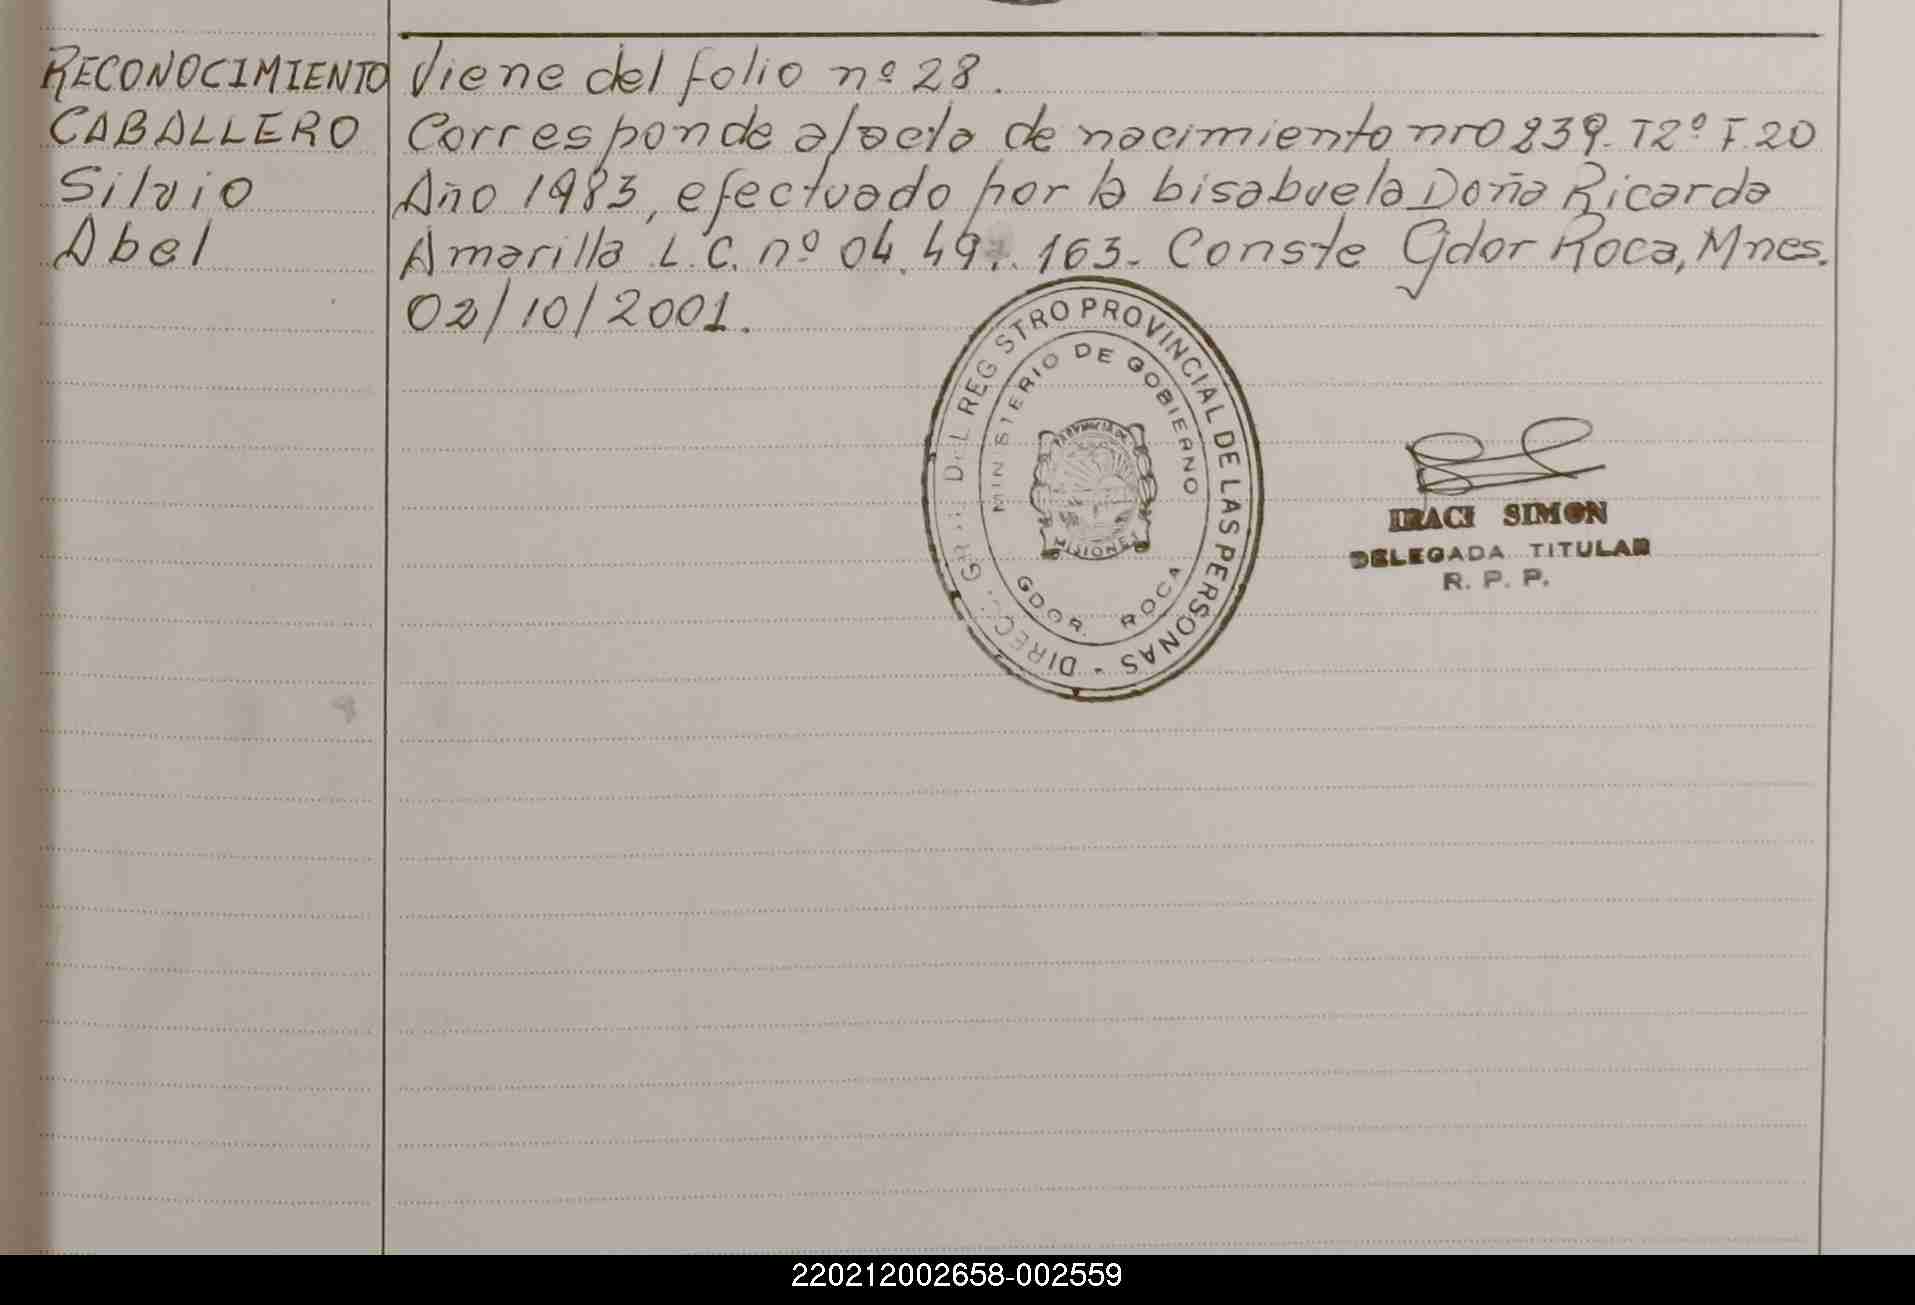 RECONOCIMIENTO
CABALLERO
Silvio
Abel
Viene del folio nº 28.
Corresponde al acta de nacimiento nro 239. T2º F.20
Año 1983, efectuado por la bisabuela Doña Ricarda
Amarilla L.C. nº 04.49 .163. Conste Gdor Roca, Mnes.
02/10/2001.
DEL REGISTRO PROVINCIAL DE LAS PERSONAS -
MINISTERIO DE GOBIERNO
PROVINCIA DE
MISIONES
GDOR. ROCA
IRACI SIMON
DELEGADA TITULAR
R. P. P.
220212002658-002559